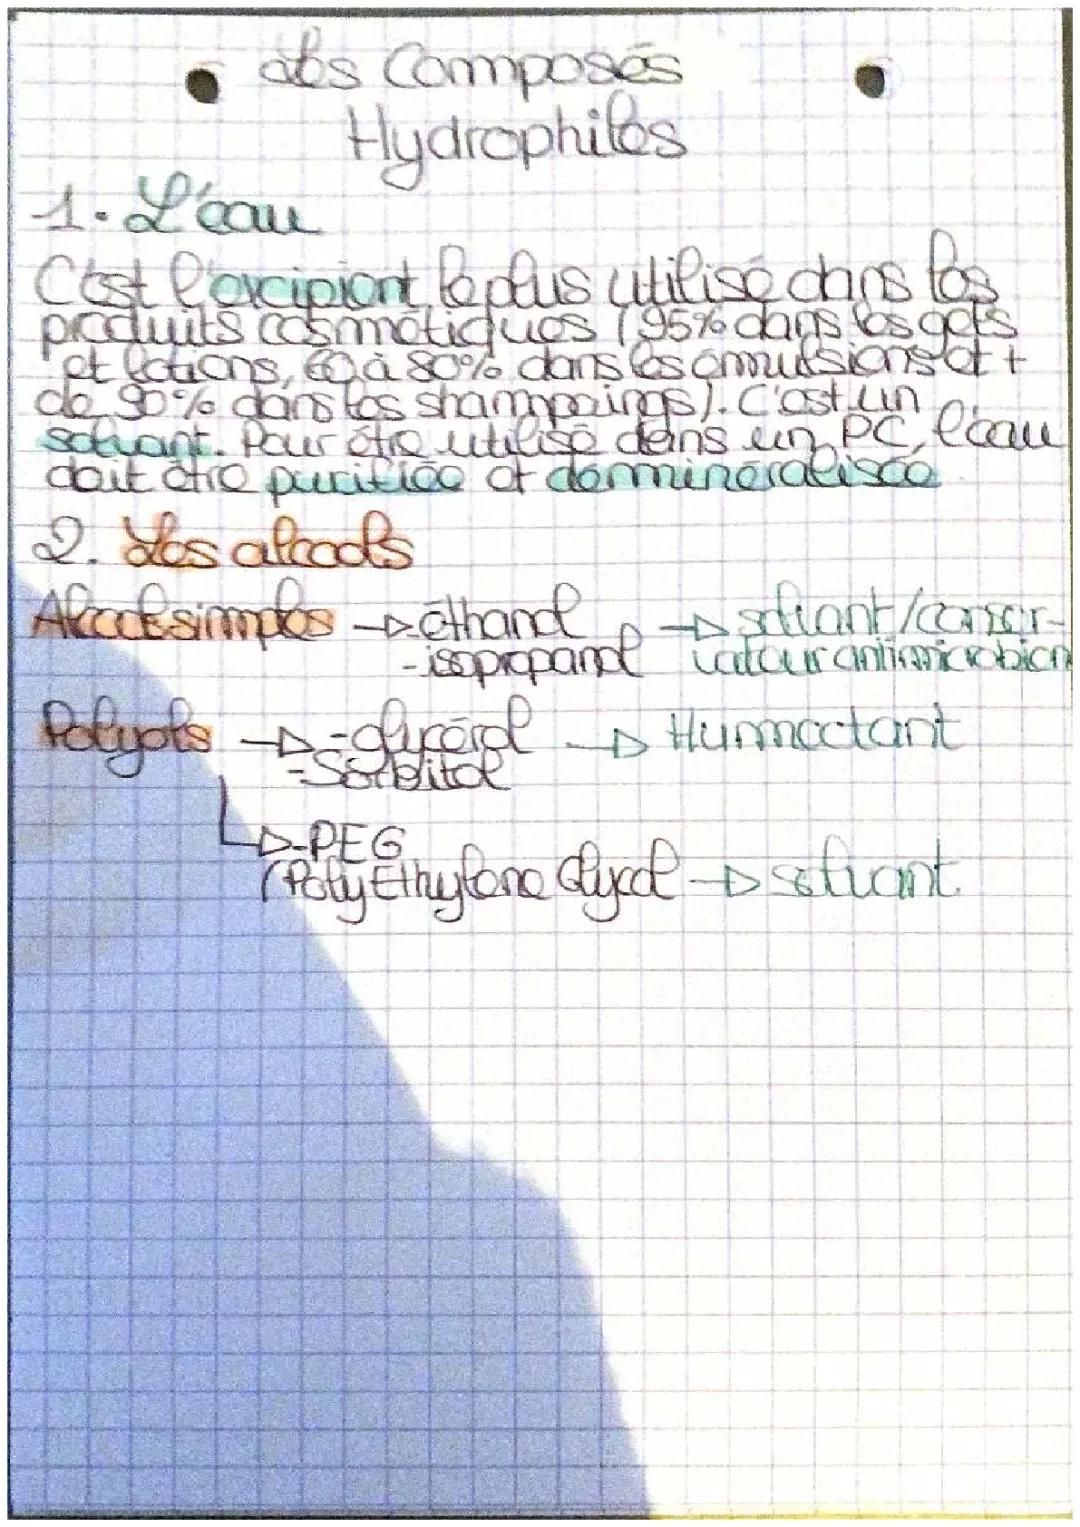 Les Composés
Hydrophiles
1. L'eau
C'est l'excipient le plus utilisé dans les
produits cosmétiques (95% dans les gels
et lotions, 60 à 80% dans les émmulsions et +
de 90% dans les shampoings). C'est un
solvant. Pour être utilisé dans un PC, l'eau
doit être purifiée et démminéralisée
2. Les alcools
Alcool simples → éthanol → solvant/conser-
- isopropanol vateur antimicrobien
Polyols → - glycérol → Humectant
- Sorbitol
→ - PEG
(PolyEthylene Glycol → solvant